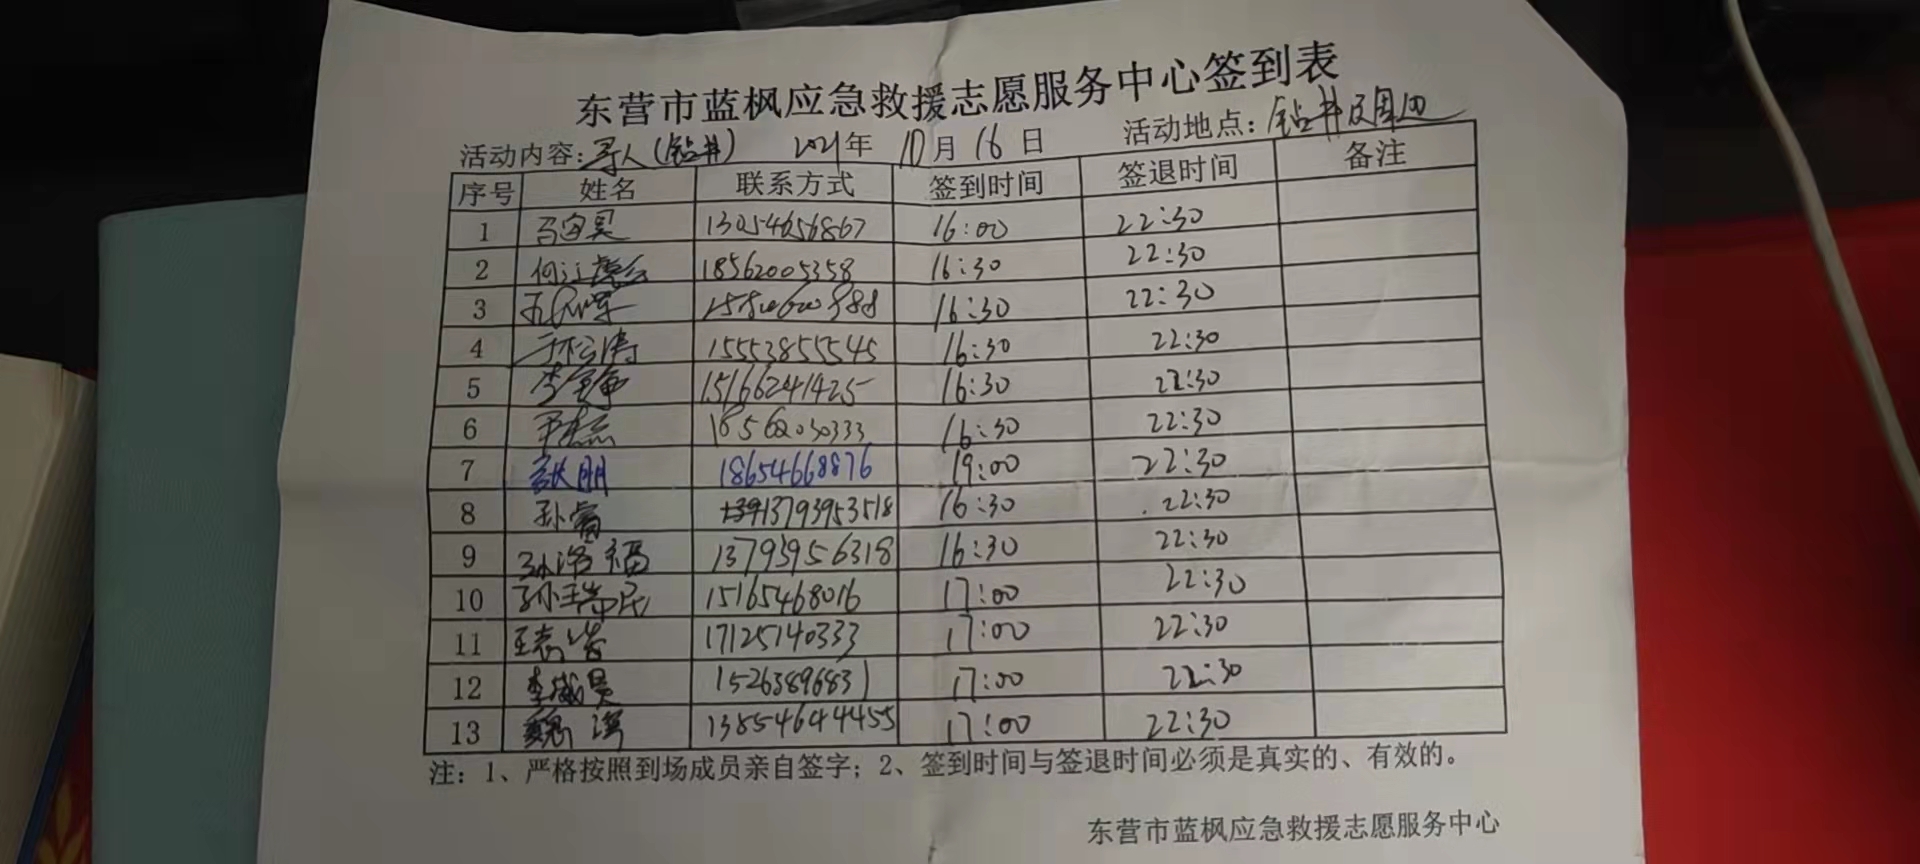 东营市蓝枫应急救援志愿服务中心签到表
活动内容:寻人(钻井) 2021年 10月16日 活动地点:钻井及周边
序号 姓名 联系方式 签到时间 签退时间 备注
1 13054656867 16:00 22:30
2 18562005358 16:30 22:30
3 16:30 22:30
4 于松涛 15553855545 16:30 22:30
5 15166241425 16:30 22:30
6 18562030333 16:30 22:30
7 张朋 18654668876 19:00 22:30
8 13793953518 16:30 22:30
9 13793956318 16:30 22:30
10 15165468016 17:00 22:30
11 17125140333 17:00 22:30
12 15263896831 17:00 22:30
13 13854644455 17:00 22:30
注:1、严格按照到场成员亲自签字;2、签到时间与签退时间必须是真实的、有效的。
东营市蓝枫应急救援志愿服务中心